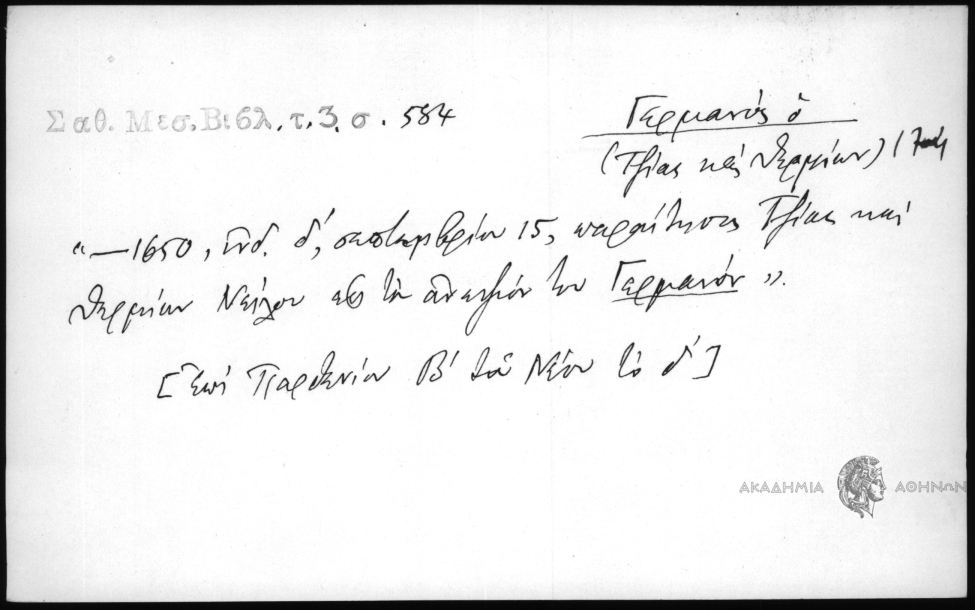 Σαθ. Μεσ. Βιβλ. τ. 3. σ. 584
Γερμανός ὁ
(Τζίας καὶ Θερμίων)
"—1650, ἰνδ. δ', σεπτεμβρίου 15, παραίτησις Τζίας καὶ
Θερμίων Νείλου εἰς τὸν ἀνεψιόν του Γερμανόν".
[Ἐπὶ Παρθενίου Β' τοῦ Νέου τὸ δ']
ΑΚΑΔΗΜΙΑ ΑΘΗΝΩΝ